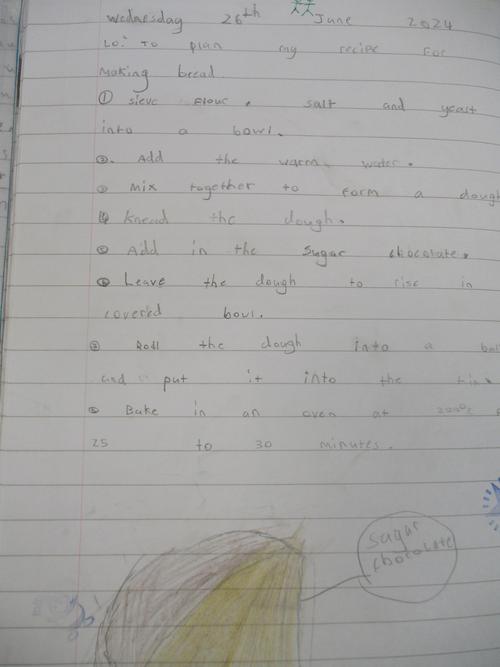 Wednesday 26th June 2024
LO: To plan my recipe for
making bread.
① sieve flour, salt and yeast
into a bowl.
②. Add the warm water.
③ Mix together to form a dough
④ Knead the dough.
⑤ Add in the sugar chocolate.
⑥ Leave the dough to rise in
covered bowl.
⑦ Roll the dough into a ball
and put it into the tin.
⑧ Bake in an oven at 200°c
25 to 30 minutes.
sugar
chocolate